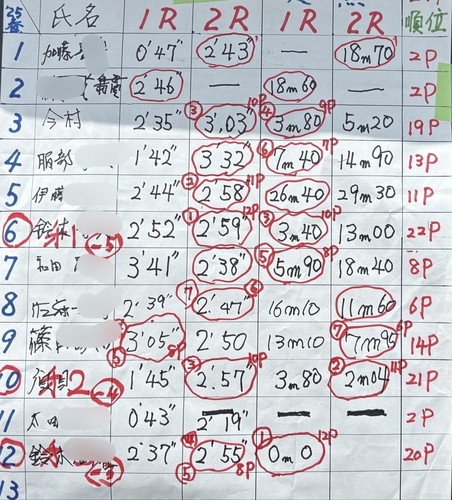 '25春 氏名 1R 2R 1R 2R 順位
1 加藤 0'47" 2'43" — 18m70 2P
2 2'46" — 18m60 — 2P
3 今村 2'35" ③ 3,03" 10P ④ 3m80 9P 5m20 19P
4 服部 1'42" 3 32" ⑥ 7m40 7P 14m90 13P
5 伊藤 2'44" ② 2'58" 11P 26m40 29m30 11P
⑥ 鈴木 1 -5 2'52" ① 2'59" 12P ③ 3m40 10P 13m00 22P
7 和田 3'41" 2'38" ⑤ 5m90 8P 18m40 8P
8 2'39" ⑦ 2'47" ⑥ 16m10 11m60 6P
9 篠 3'05" ⑤ 8P 2'50 13m10 ⑦ 7m95 6P 14P
⑩ 2 -4 1'45" ③ 2'57" 10P 3m80 ② 2m04 11P 21P
11 太田 0'43" — 2'19" — — 2P
⑫ 鈴木 2'37" 2'55" ⑤ 8P ① 0m0 12P 20P
13